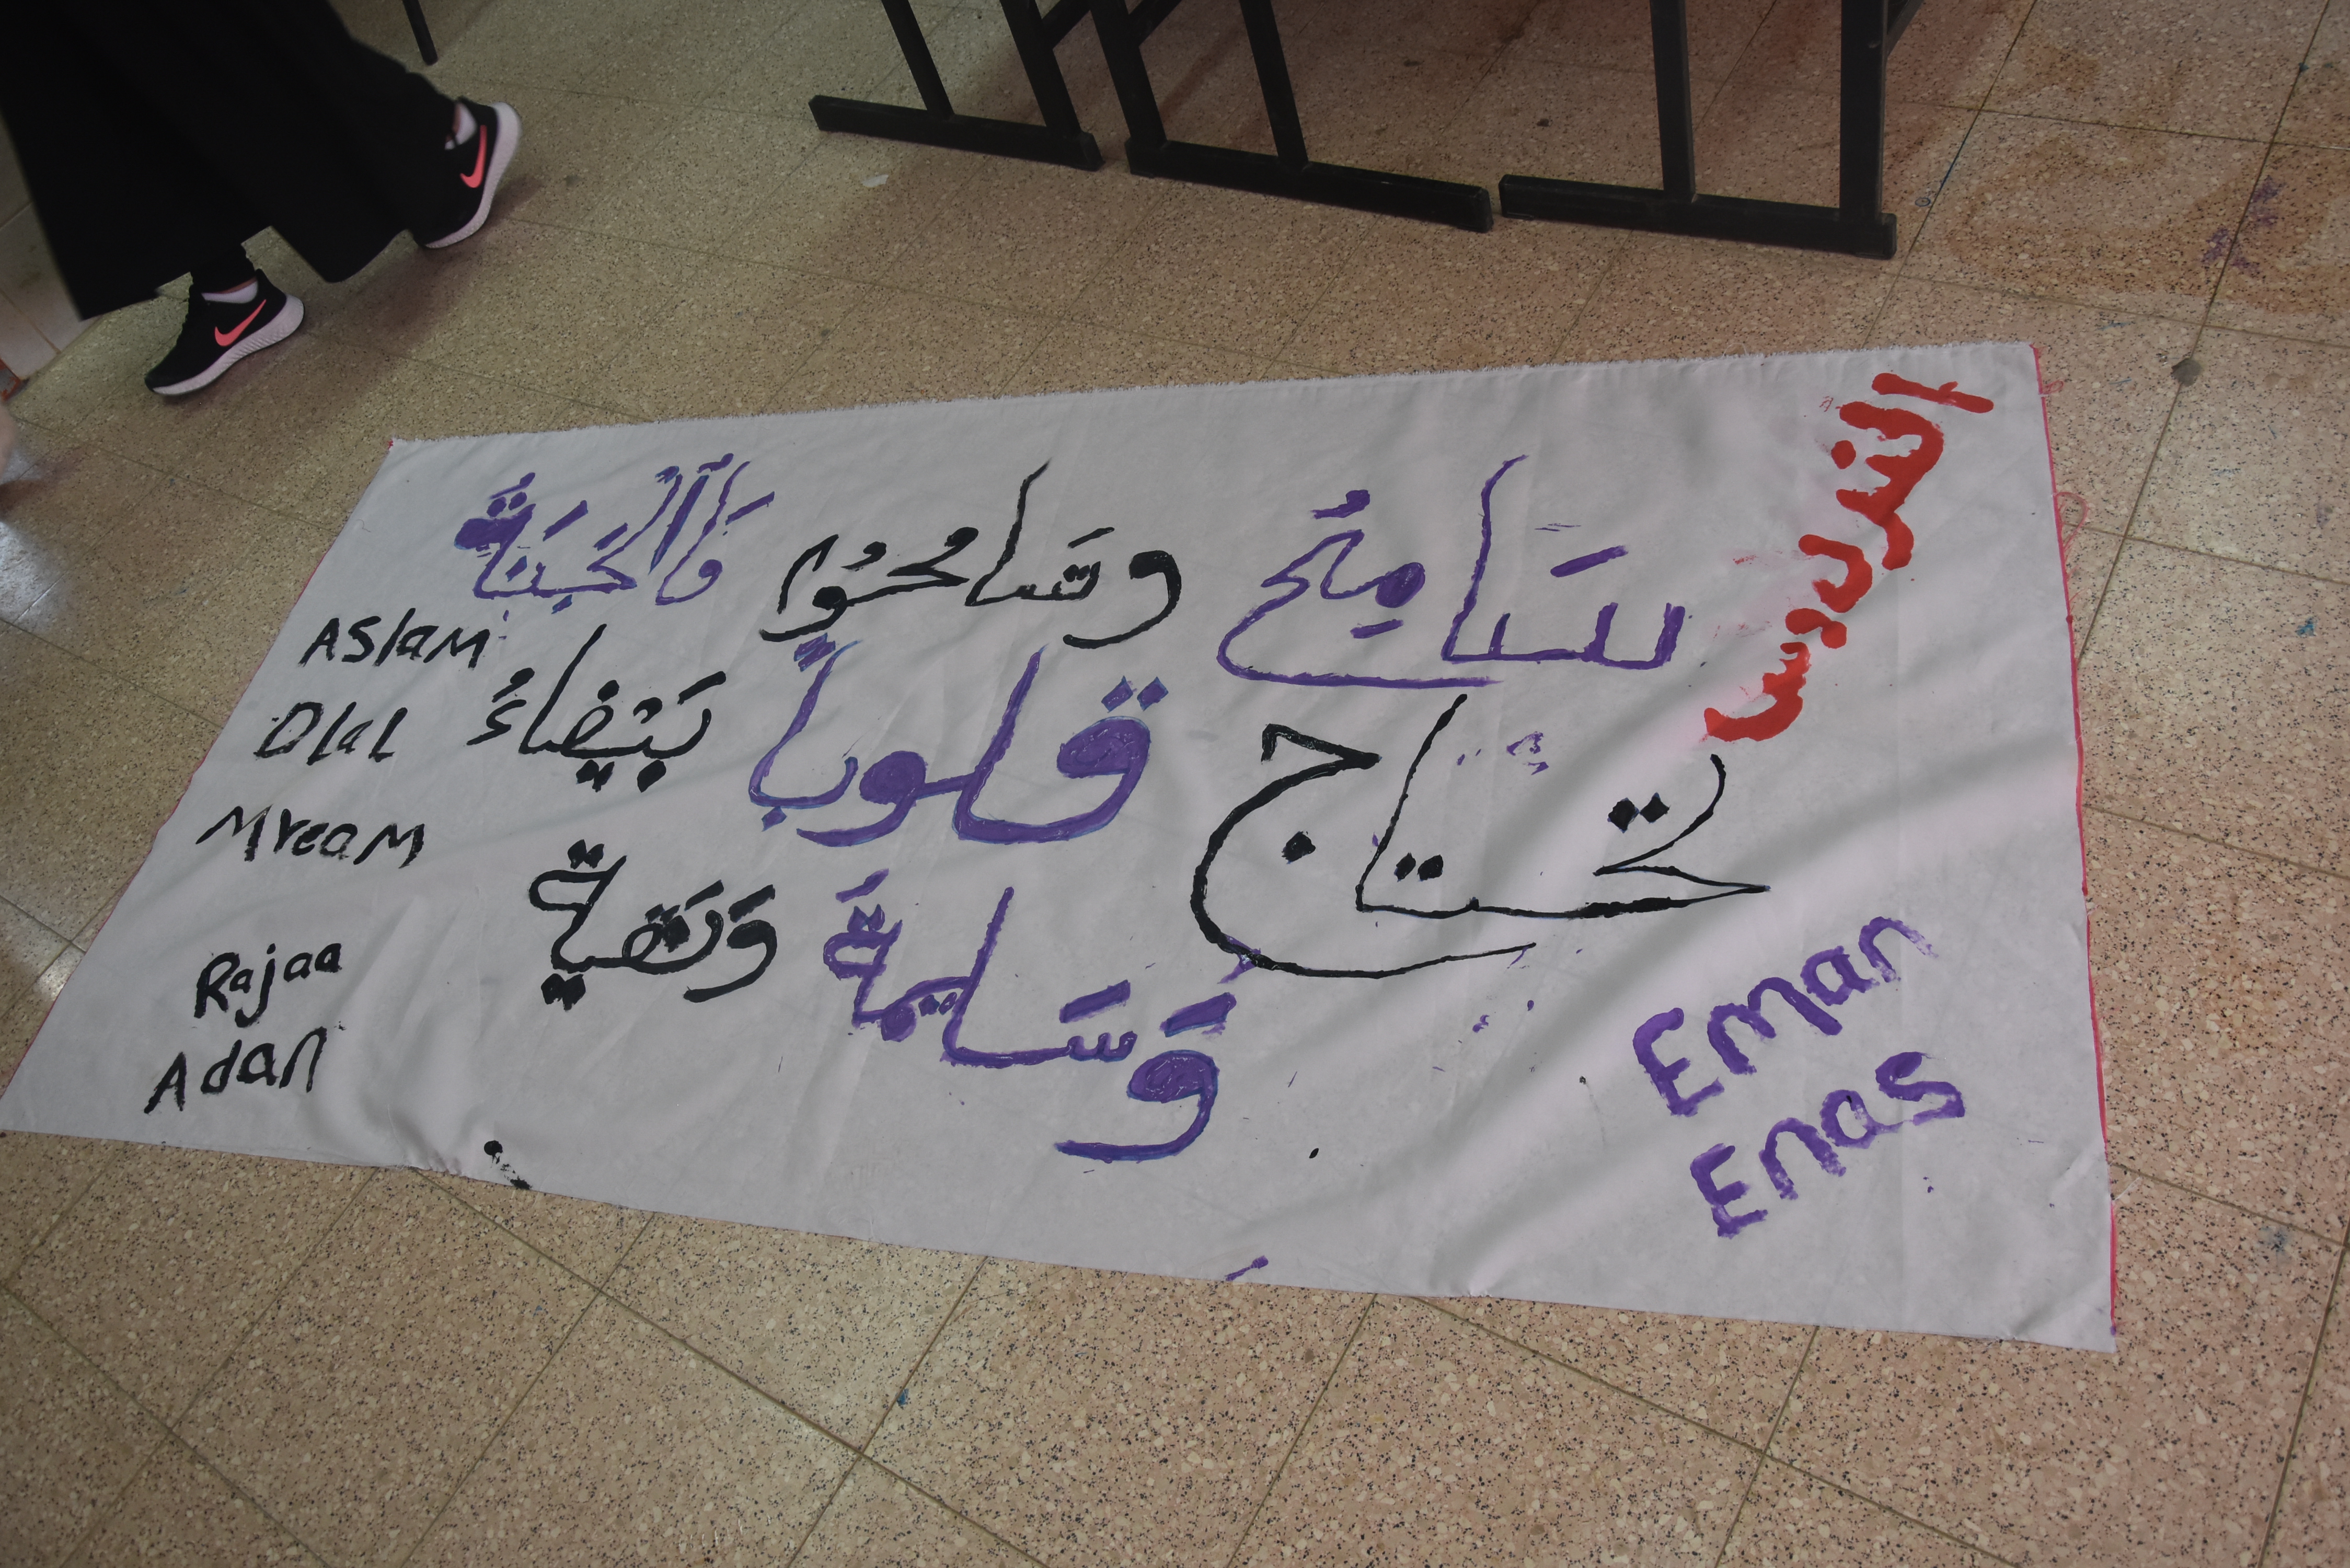 الفردوس
سَامِحُ وسَامحُوا فَالْجَنَّةُ
تحتاج قلوباً بَيْضاءُ
وَسَليمةً وَنَقيةً
Aslam
Dlal
Mream
Rajaa
Adan
Eman
Enas